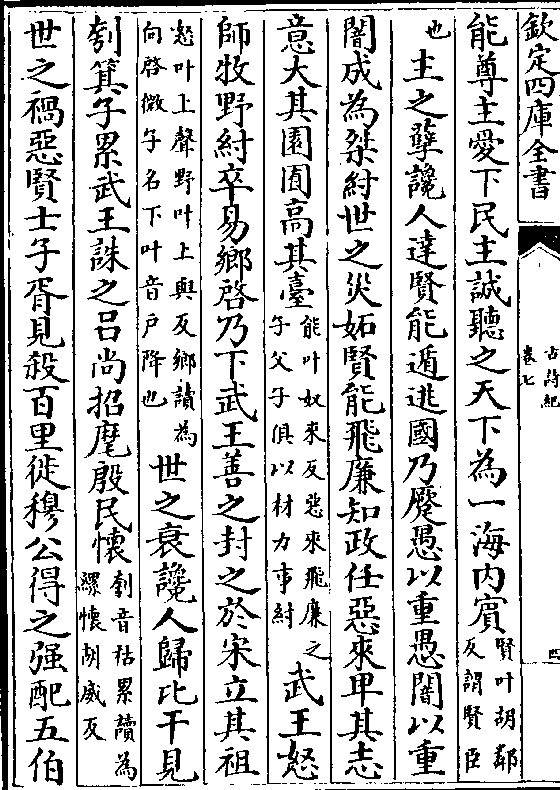 欽定四庫全書
古詩紀
卷七
四
能尊主愛下民主誠聽之天下為一海内賔賢叶胡鄰反謂賢臣
也主之孽讒人逹賢能遁逃國乃蹷愚以重愚闇以重
闇成為桀紂世之災妬賢能飛廉知政任惡來卑其志
意大其園囿髙其臺能叶奴來反惡來飛廉之子父子俱以材力事紂武王怒
師牧野紂卒易鄉啓乃下武王善之封之於宋立其祖
怒叶上聲野叶上與反鄉讀為向啓微子名下叶音戶降也世之衰讒人歸比干見
刳箕子累武王誅之吕尚招麾殷民懷刳音枯累讀為縲懷胡威反
世之禍惡賢士子胥見殺百里徙穆公得之强配五伯